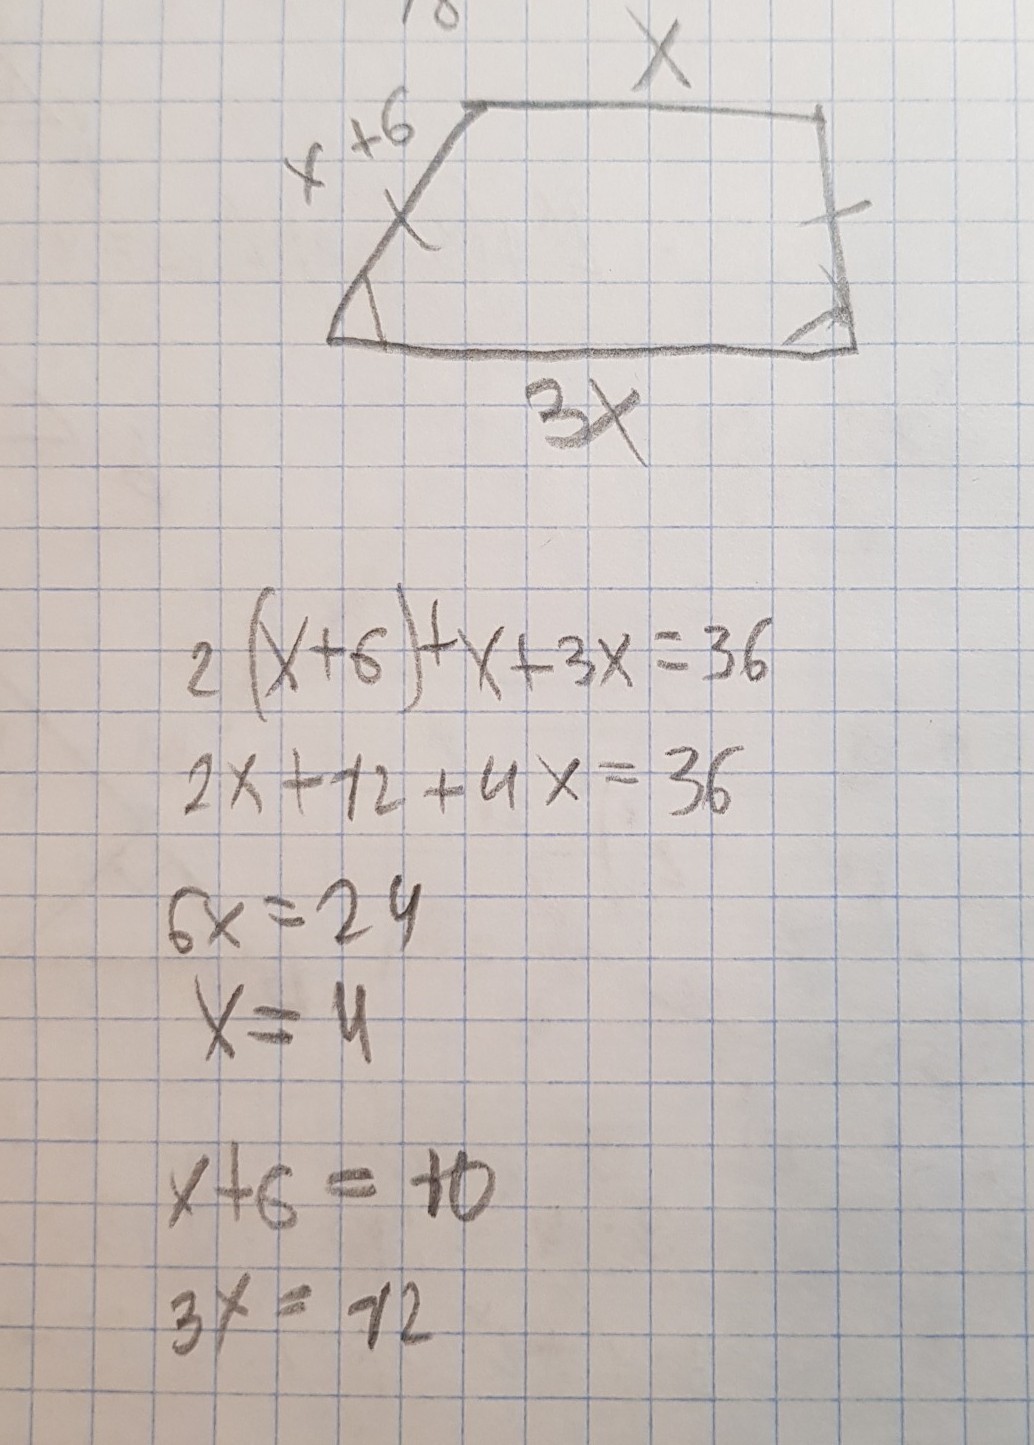 x
x+6
3x
2(x+6)+x+3x=36
2x+12+4x=36
6x=24
x=4
x+6=10
3x=12